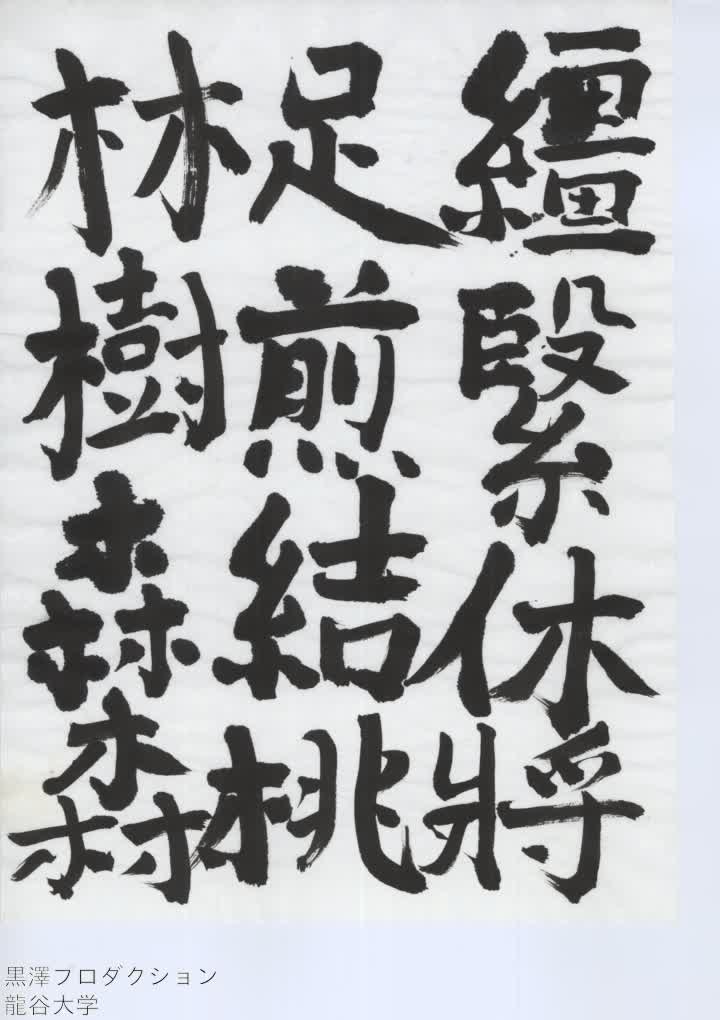 繮緊休將
足煎結桃
林樹森森
黒澤プロダクション
龍谷大学